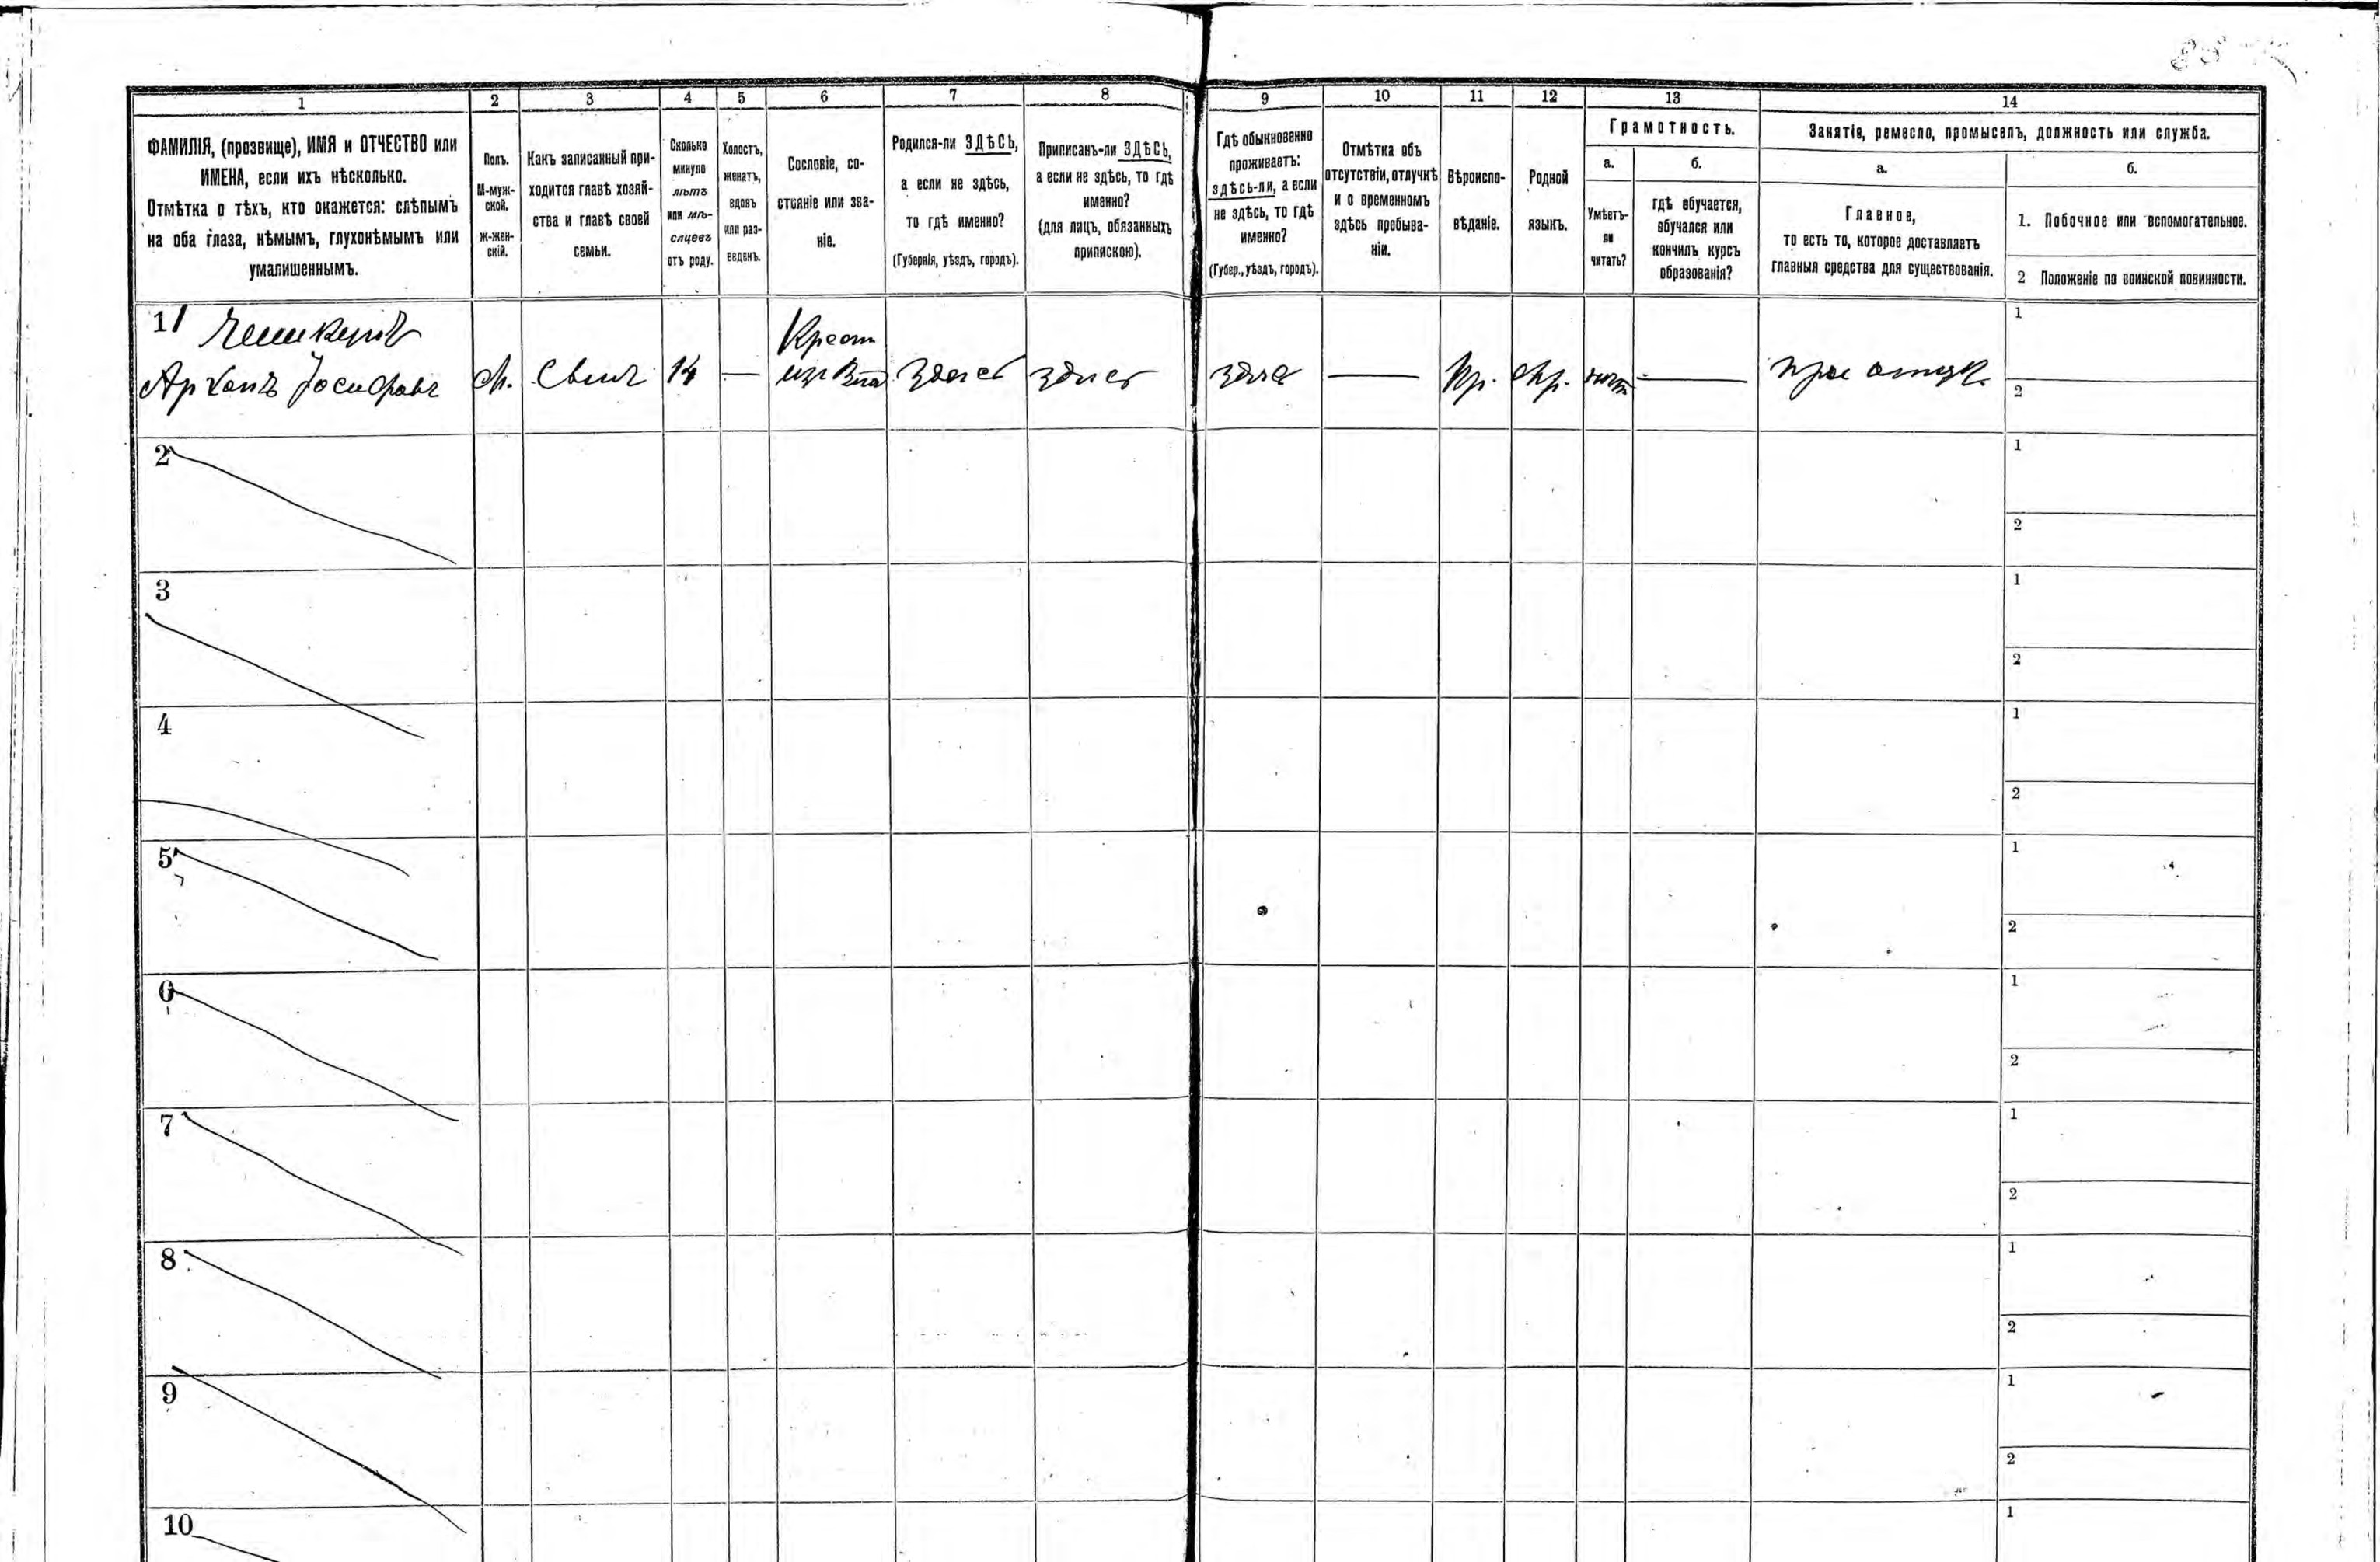 1 2 3 4 5 6 7 8 9 10 11 12 13 14
ФАМИЛІЯ, (прозвище), ИМЯ и ОТЧЕСТВО или
ИМЕНА, если ихъ нѣсколько.
Отмѣтка о тѣхъ, кто окажется: слѣпымъ
на оба глаза, нѣмымъ, глухонѣмымъ или
умалишеннымъ.
Полъ.
М-муж-
ской.
Ж-жен-
скій.
Какъ записанный при-
ходится главѣ хозяй-
ства и главѣ своей
семьи.
Сколько
минуло
лѣтъ
или мѣ-
сяцевъ
отъ роду.
Холостъ,
женатъ,
вдовъ
или раз-
веденъ.
Сословіе, со-
стояніе или зва-
ніе.
Родился-ли ЗДѢСЬ,
а если не здѣсь,
то гдѣ именно?
(Губернія, уѣздъ, городъ).
Приписанъ-ли ЗДѢСЬ,
а если не здѣсь, то гдѣ
именно?
(для лицъ, обязанныхъ
припискою).
Гдѣ обыкновенно
проживаетъ:
здѣсь-ли, а если
не здѣсь, то гдѣ
именно?
(Губер., уѣздъ, городъ).
Отмѣтка объ
отсутствіи, отлучкѣ
и о временномъ
здѣсь пребыва-
ніи.
Вѣроиспо-
вѣданіе.
Родной
языкъ.
Грамотность.
а.
Умѣетъ-
ли
читать?
б.
гдѣ обучается,
обучался или
кончилъ курсъ
образованія?
Занятіе, ремесло, промыселъ, должность или служба.
а.
Главное,
то есть то, которое доставляетъ
главныя средства для существованія.
б.
1. Побочное или вспомогательное.
2 Положеніе по воинской повинности.
11
Архипъ Іосифовъ М. Сынъ 14 — Крест здесь здесь здесь — Пр. —
1
2
2
1
2
3
1
2
4
1
2
5
1
2
6
1
2
7
1
2
8
1
2
9
1
2
10
1